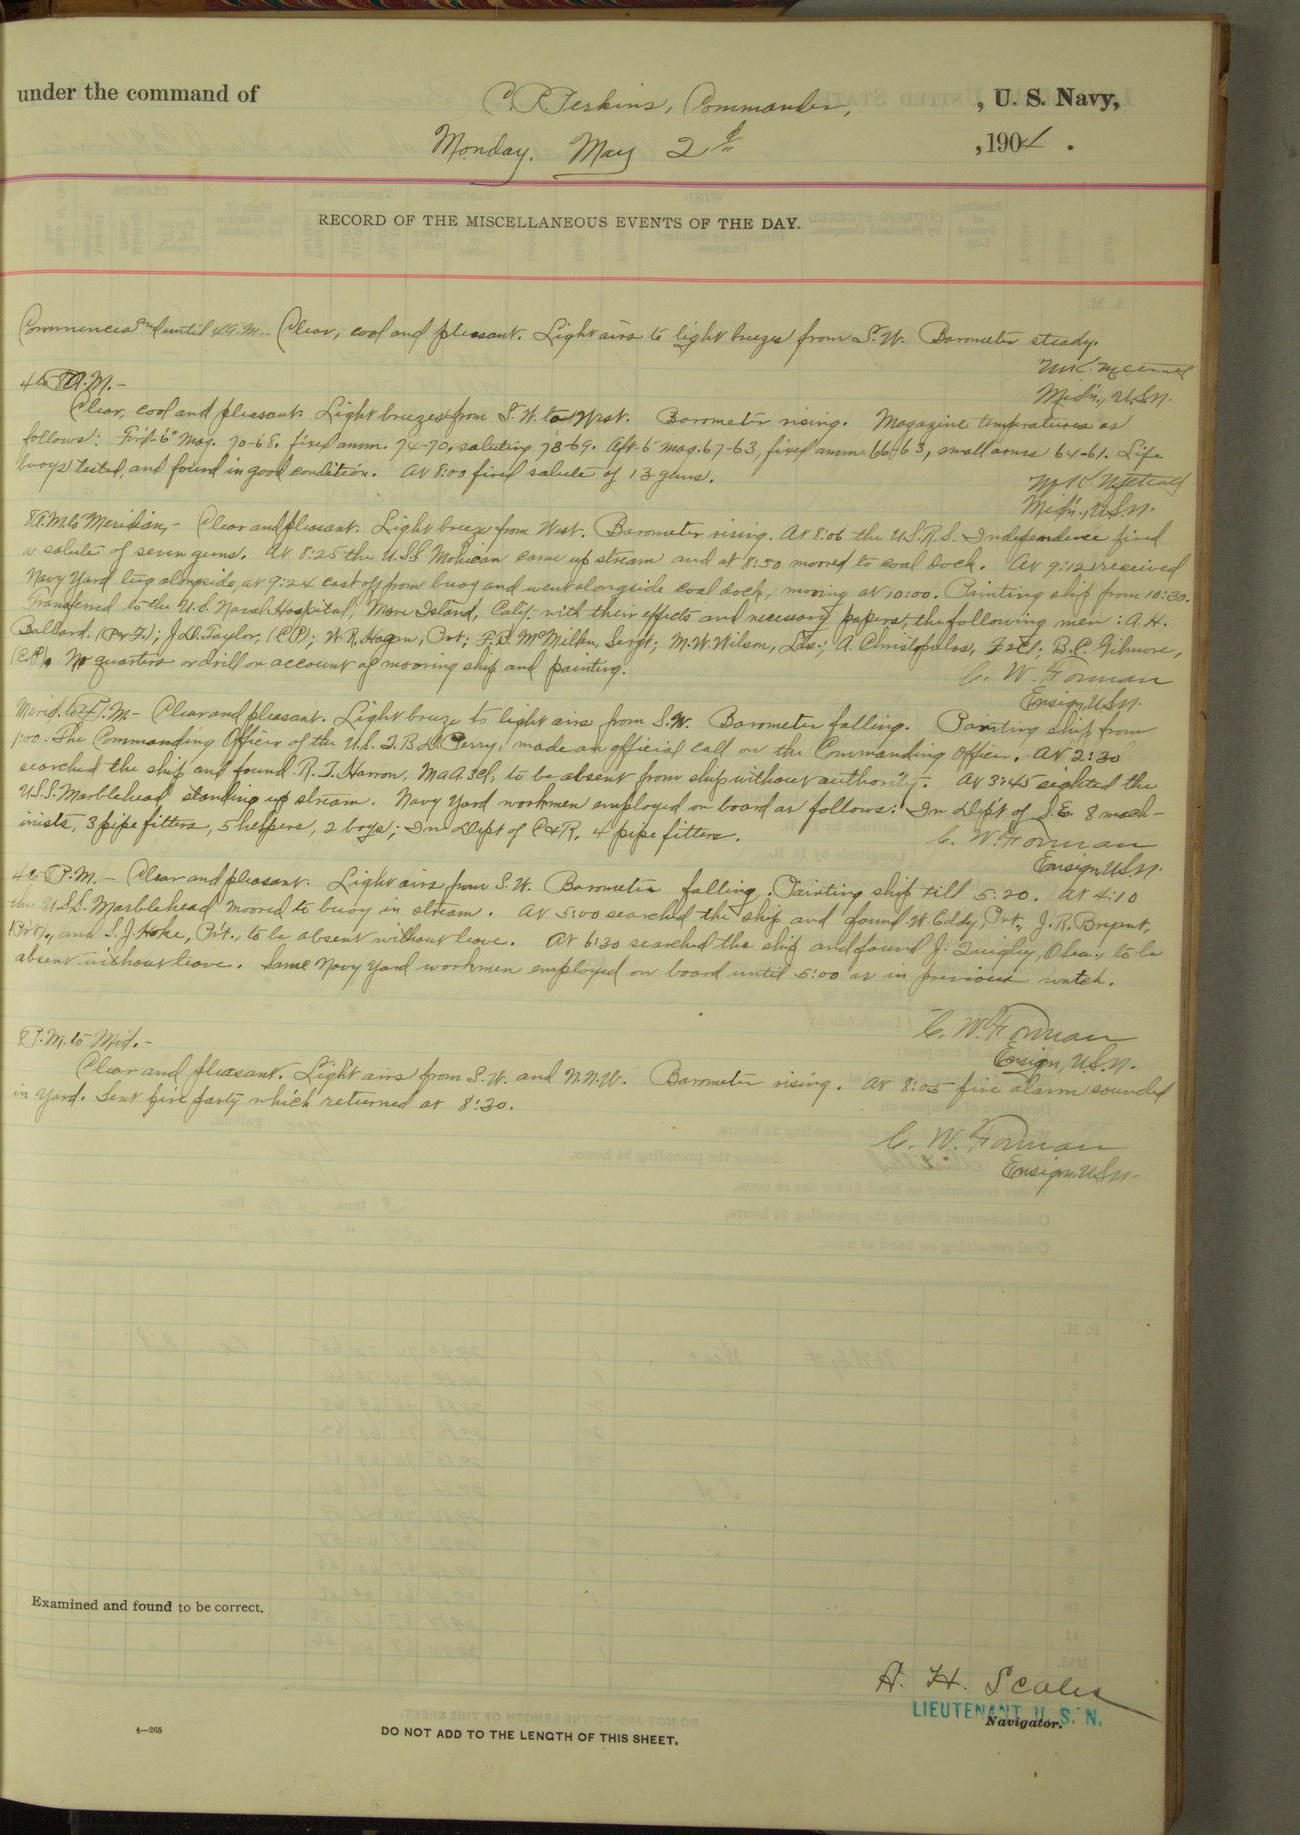 under the command of C. P. Perkins, Commander, , U. S. Navy,
Monday. May 2d , 1904 .
RECORD OF THE MISCELLANEOUS EVENTS OF THE DAY.
Commences and until 4 A.M.- Clear, cool and pleasant. Light airs to light breezes from S.W. Barometer steady.
Mid'n., U.S.N.
4 to 8 A.M.-
Clear, cool and pleasant. Light breezes from S.W. to West. Barometer rising. Magazine temperatures as
follows: For'd-6" Mag. 70-68. fixed amm. 74-70, saluting 73-69. Aft-6" mag. 67-63, fixed amm. 66-63, small arms 64-61. Life
buoys tested, and found in good condition. At 8:00 fired salute of 13 guns.
Mid'n., U.S.N.
8 A.M. to Meridian,- Clear and pleasant. Light breeze from West. Barometer rising. At 8:06 the U.S.R.S. Independence fired
a salute of seven guns. At 8:25 the U.S.S. Mohican came up stream and at 8:50 moored to coal dock. At 9:12 received
Navy Yard tug alongside, at 9:24 cast off from buoy and went alongside coal dock, mooring at 10:00. Painting ship from 10:30.
Transferred to the U.S. Naval Hospital, Mare Island, Calif. with their effects and necessary papers, the following men: A.H.
Ballard. (P&F.); J.D. Taylor, (C.P.); W.R. Hagen, Pvt.; F.B. McMillen, Sergt.; M.W. Wilson, Lds.; A. Christopulos, F2Cl.; B.C. Gilmore,
(C.P.). No quarters or drill on account of mooring ship and painting.
C. W. Forman
Ensign, U.S.N.
Merid. to 4 P.M.- Clear and pleasant. Light breeze to light airs from S.W. Barometer falling. Painting ship from
1:00. The Commanding Officer of the U.S.T.B.D. Perry, made an official call on the Commanding Officer. At 2:30
searched the ship and found R.T. Harron, MaA.3cl, to be absent from ship without authority. At 3:45 sighted the
U.S.S. Marblehead standing up stream. Navy Yard workmen employed on board as follows: In Dep't of S.E. 8 mach-
inists, 3 pipe fitters, 5 helpers, 2 boys; In Dep't of C&R. 4 pipe fitters.
C. W. Forman
Ensign U.S.N.
4 to 8 P.M.- Clear and pleasant. Light airs from S.W. Barometer falling. Painting ship till 5:20. At 4:10
the U.S.S. Marblehead moored to buoy in stream. At 5:00 searched the ship and found W. Eddy, Pvt., J.R. Bryant,
(Pvt)., and S.J. Hoke, Pvt., to be absent without leave. At 6:30 searched the ship and found J. Quigley, O.Sea., to be
absent without leave. Same Navy Yard workmen employed on board until 5:00 as in previous watch.
C. W. Forman
Ensign, U.S.N.
8 P.M. to Mid.-
Clear and pleasant. Light airs from S.W. and N.N.W. Barometer rising. At 8:05 fire alarm sounded
in Yard. Sent fire party which returned at 8:30.
C. W. Forman
Ensign, U.S.N.
Examined and found to be correct.
A. H. Scales
LIEUTENANT, U. S. N.
Navigator.
4—265
DO NOT ADD TO THE LENGTH OF THIS SHEET.